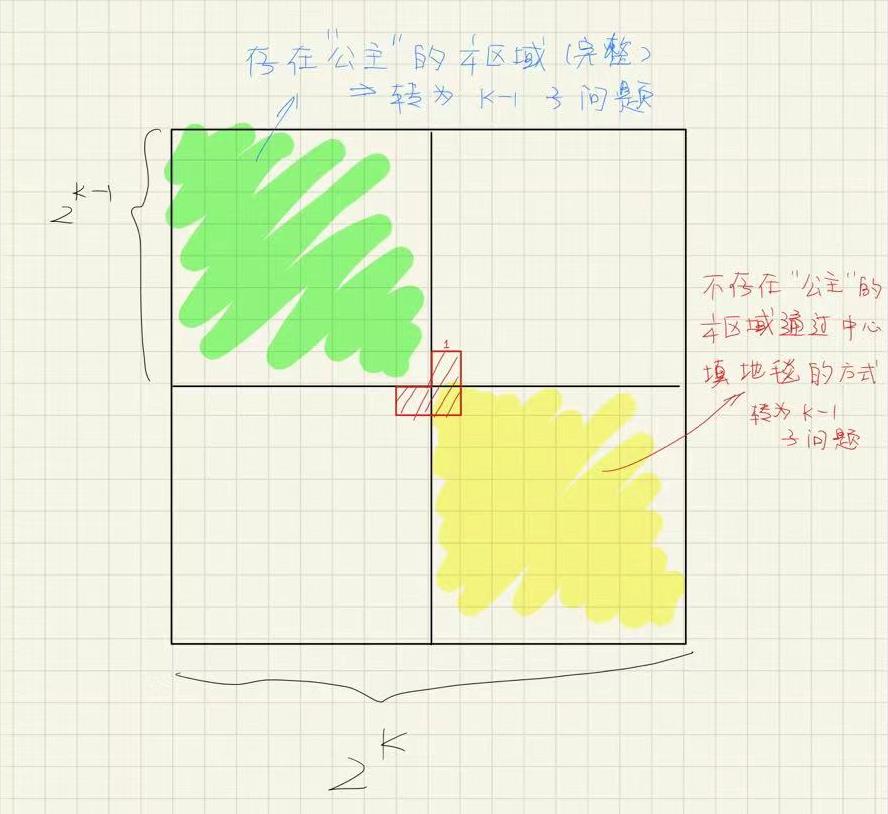 存在“公主”的 1/4区域 (完整)
⇒ 转为 K-1 子问题
2^{K-1}
不存在“公主”的
1/4区域通过中心
填地毯的方式
转为 K-1
子问题
1
2^K